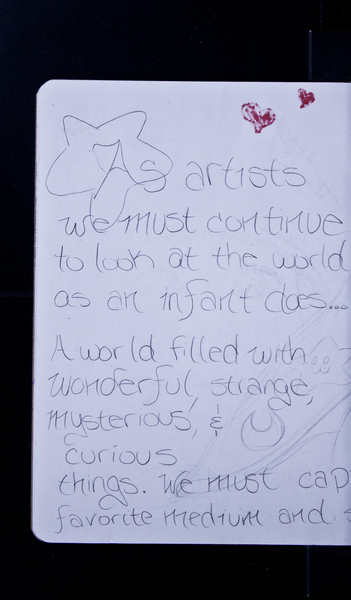 As artists
we must continue
to look at the world
as an infant does...
A world filled with
wonderful, strange,
mysterious, &
curious
things. We must cap
favorite medium and s